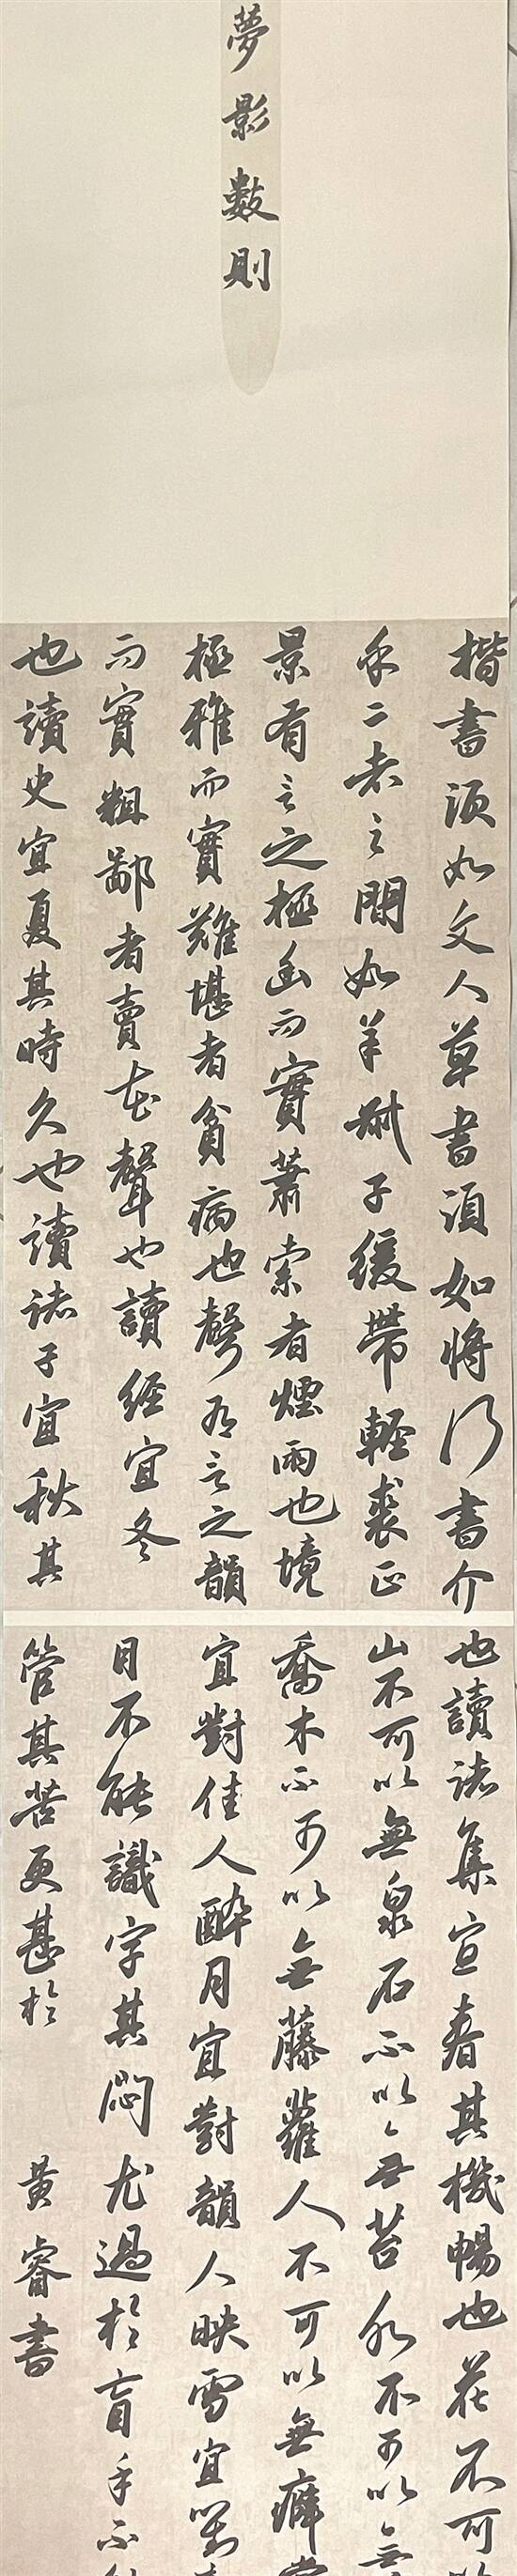 夢影數則
楷書須如文人草書須如將行書介
乎二者之間如羊叔子緩帶輕裘正
景有言之極幽而實蕭索者煙雨也境
極雅而實難堪者貧病也聲有言之韻
而實粗鄙者賣花聲也讀經宜冬
也讀史宜夏其時久也讀諸子宜秋其
也讀諸集宜春其機暢也花不可
山不可以無泉石不以無苔水不可以無
喬木不可以無藤蘿人不可以無癖
宜對佳人醉月宜對韻人映雪宜對
目不能識字其悶尤過於盲手不
管其苦更甚於
黃睿書